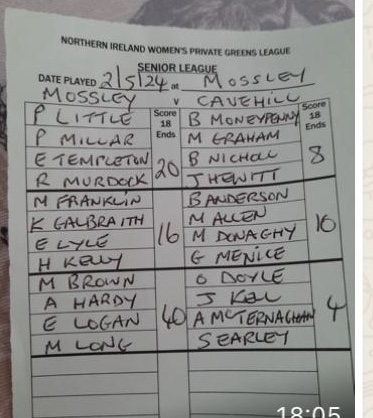 NORTHERN IRELAND WOMEN'S PRIVATE GREENS LEAGUE
SENIOR LEAGUE
DATE PLAYED 2/5/24 at MOSSLEY
MOSSLEY v CAVEHILL
P LITTLE Score 18 Ends B MONEYPENNY Score 18 Ends
P MILLAR M GRAHAM
E TEMPLETON 20 B NICHOLL 8
R MURDOCK J HEWITT
M FRANKLIN B ANDERSON
K GALBRAITH M ALLEN
E LYLE 16 M DONAGHY 10
H KELLY G MENICE
M BROWN O DOYLE
A HARDY J KELL
E LOGAN 40 A MCTERNAGHAN 4
M LONG S EARLEY
18:05